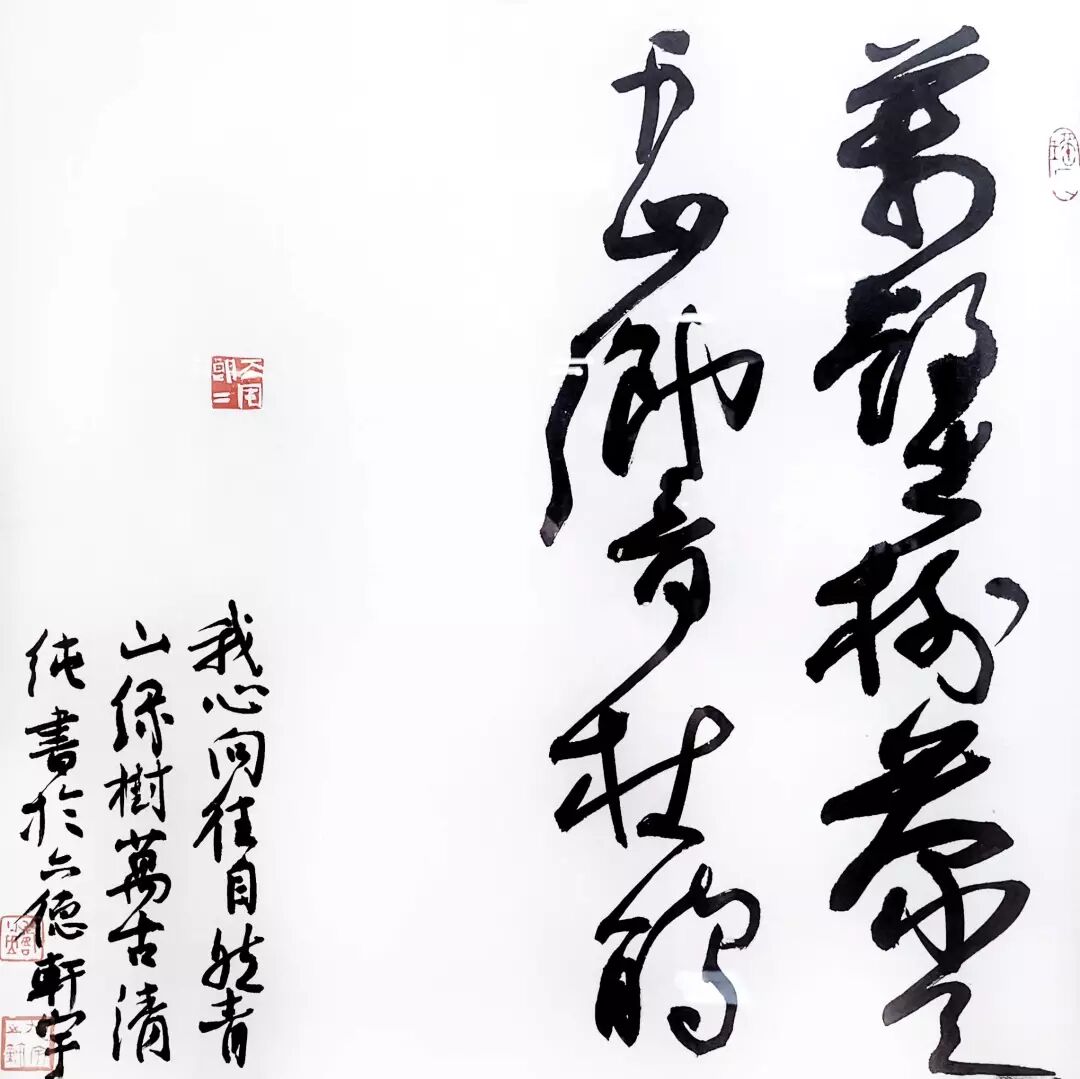 萬壑樹參天
千山響杜鵑
我心向往自然青
山綠樹萬古清
純書於六德軒宇